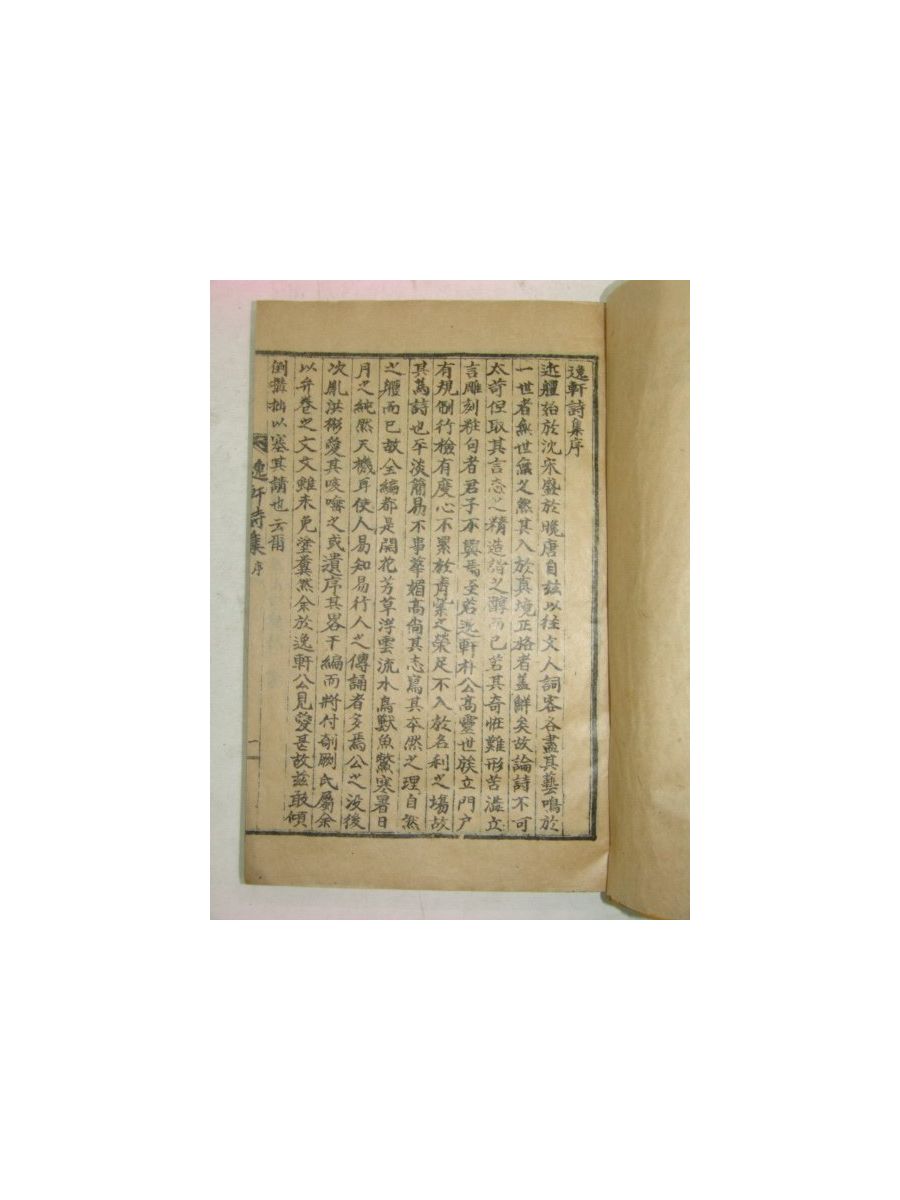 逸軒詩集序
近軆始於沈宋盛於晩唐自玆以徃文人詞客各盡其藝鳴於
一世者無世無之然其入於真境正格者盖鮮矣故論詩不可
太苛但取其言志之精造詣之醇而已若其奇恠難形苦澁立
言雕刻粧句者君子不與焉至若逸軒朴公高靈世族立門戶
有規制行檢有度心不累於肯綮之榮足不入於名利之場故
其爲詩也平淡簡易不事華媚高尙其志寫其卒然之理自然
之軆而已故全編都是閑花芳草浮雲流水鳥獸魚鱉寒暑日
月之純然天機耳使人易知易行人之傳誦者多焉公之没後
次胤洪彬愛其咳嚌之或遺序其畧干編而將付剞劂氏屬余
以弁卷之文文雖未免塗糞然余於逸軒公見愛甚故玆敢傾
倒構拙以塞其請也云爾
逸軒詩集 序 一